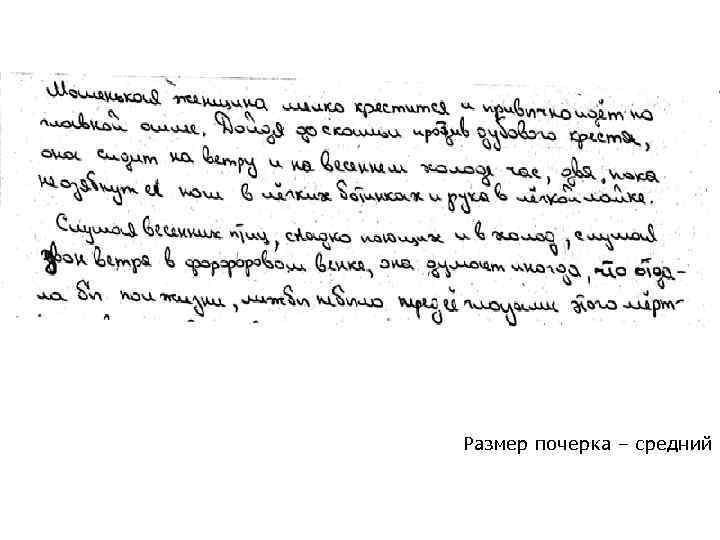 Маленькая женщина мелко крестится и привычно идёт по
главной аллее. Дойдя до скамьи против дубового креста,
она сидит на ветру и на весеннем холоде час, два, пока
не озябнут её ноги в лёгких ботинках и рука в лёгкой лайке.
Слушая весенних птиц, сладко поющих и в холод, слушая
звон ветра в фарфоровом венке, она думает иногда, что отда-
ла бы пол жизни, лижбы небыло перед её глазами этого мёрт-
Размер почерка – средний